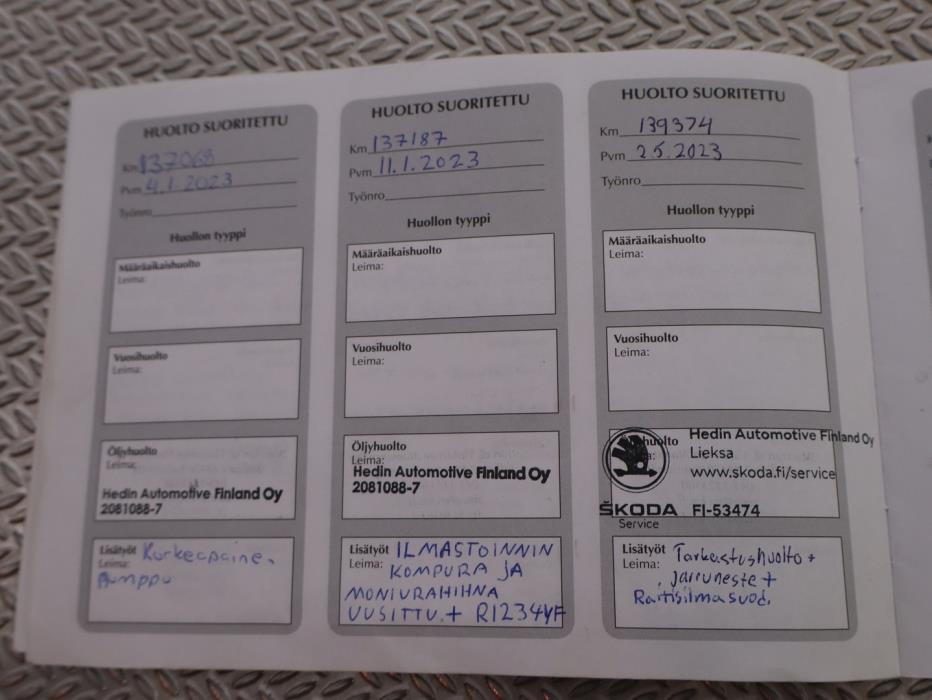 HUOLTO SUORITETTU
Km 137068
Pvm 4.1.2023
Työnro
Huollon tyyppi
Määräaikaishuolto
Leima:
Vuosihuolto
Leima:
Öljyhuolto
Leima:
Hedin Automotive Finland Oy
2081088-7
Lisätyöt Korkeapaine-
Leima:
Pumppu
HUOLTO SUORITETTU
Km 137187
Pvm 11.1.2023
Työnro
Huollon tyyppi
Määräaikaishuolto
Leima:
Vuosihuolto
Leima:
Öljyhuolto
Leima:
Hedin Automotive Finland Oy
2081088-7
Lisätyöt ILMASTOINNIN
Leima: KOMPURA JA
MONIURAHIHNA
UUSITTU.+ R1234YF
HUOLTO SUORITETTU
Km 139374
Pvm 2.5.2023
Työnro
Huollon tyyppi
Määräaikaishuolto
Leima:
Vuosihuolto
Leima:
Hedin Automotive Finland Oy
Lieksa
www.skoda.fi/service
ŠKODA FI-53474
Service
Lisätyöt Tarkastushuolto +
Leima: jarruneste +
Raitisilmasuod.